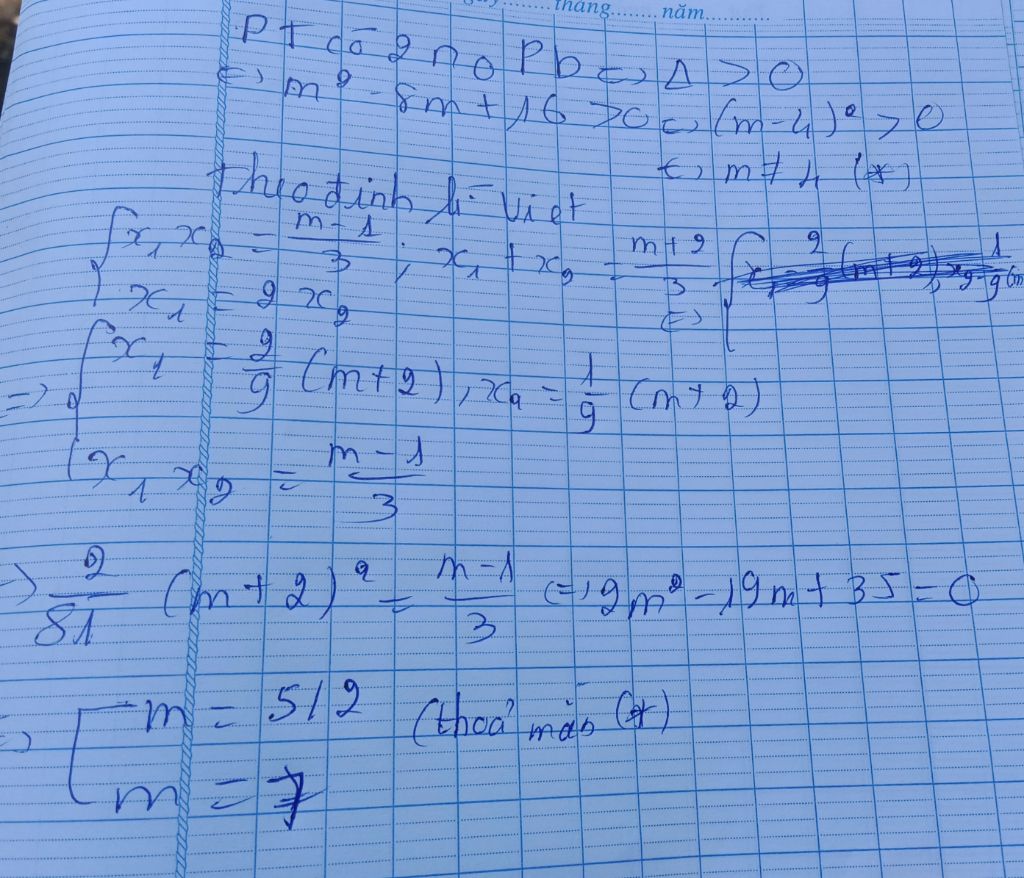 tháng........ năm............
PT có 2 no Pb <=> Δ > 0
<=> m² - 8m + 16 > 0 <=> (m-4)² > 0
<=> m ≠ 4 (*)
theo định lí Viet
{ x₁x₂ = (m-1)/3 ; x₁ + x₂ = (m+2)/3
x₁ = 2x₂ <=>
=> { x₁ = 2/9 (m+2), x₂ = 1/9 (m+2)
x₁x₂ = (m-1)/3
=> 2/81 (m+2)² = (m-1)/3 <=> 2m² - 19m + 35 = 0
=> [ m = 5/2 (thoả mãn (*)
m = 7